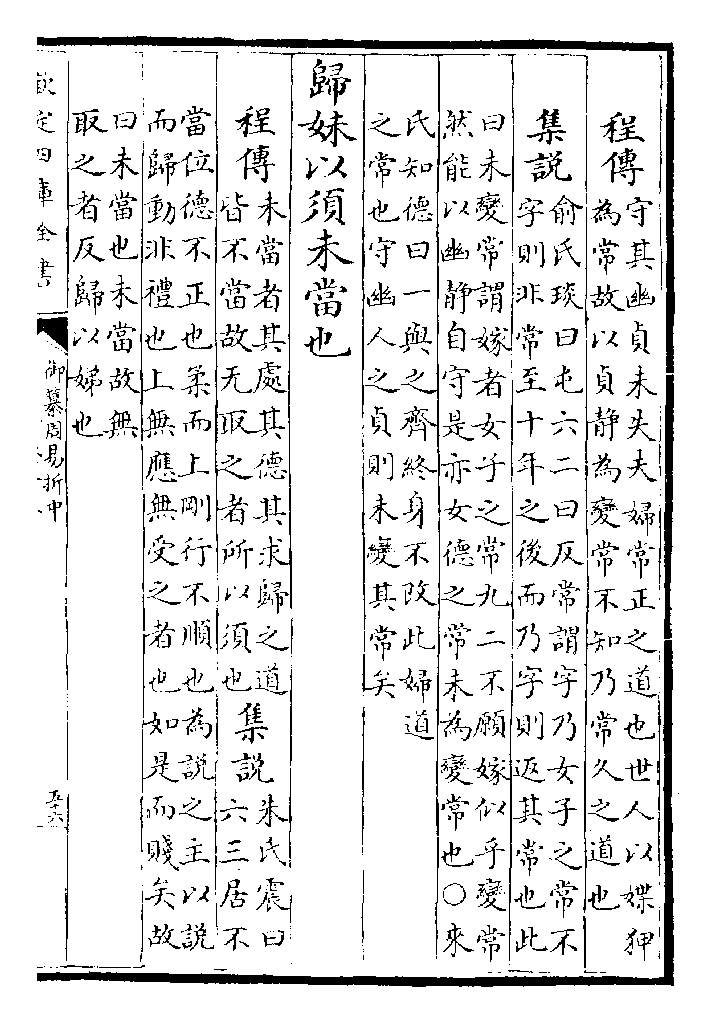 程傳守其幽貞未失夫婦常正之道也世人以媟狎
為常故以貞静為變常不知乃常久之道也
集説俞氏琰曰屯六二曰反常謂字乃女子之常不
字則非常至十年之後而乃字則返其常也此
曰未變常謂嫁者女子之常九二不願嫁似乎變常
然能以幽静自守是亦女德之常未為變常也○來
氏知德曰一與之齊終身不改此婦道
之常也守幽人之貞則未變其常矣
歸妹以須未當也
程傳未當者其處其德其求歸之道
皆不當故无取之者所以須也
集説朱氏震曰
六三居不
當位德不正也柔而上剛行不順也為説之主以説
而歸動非禮也上無應無受之者也如是而賤矣故
曰未當也未當故無
取之者反歸以娣也
欽定四庫全書
御纂周易折中
五十六